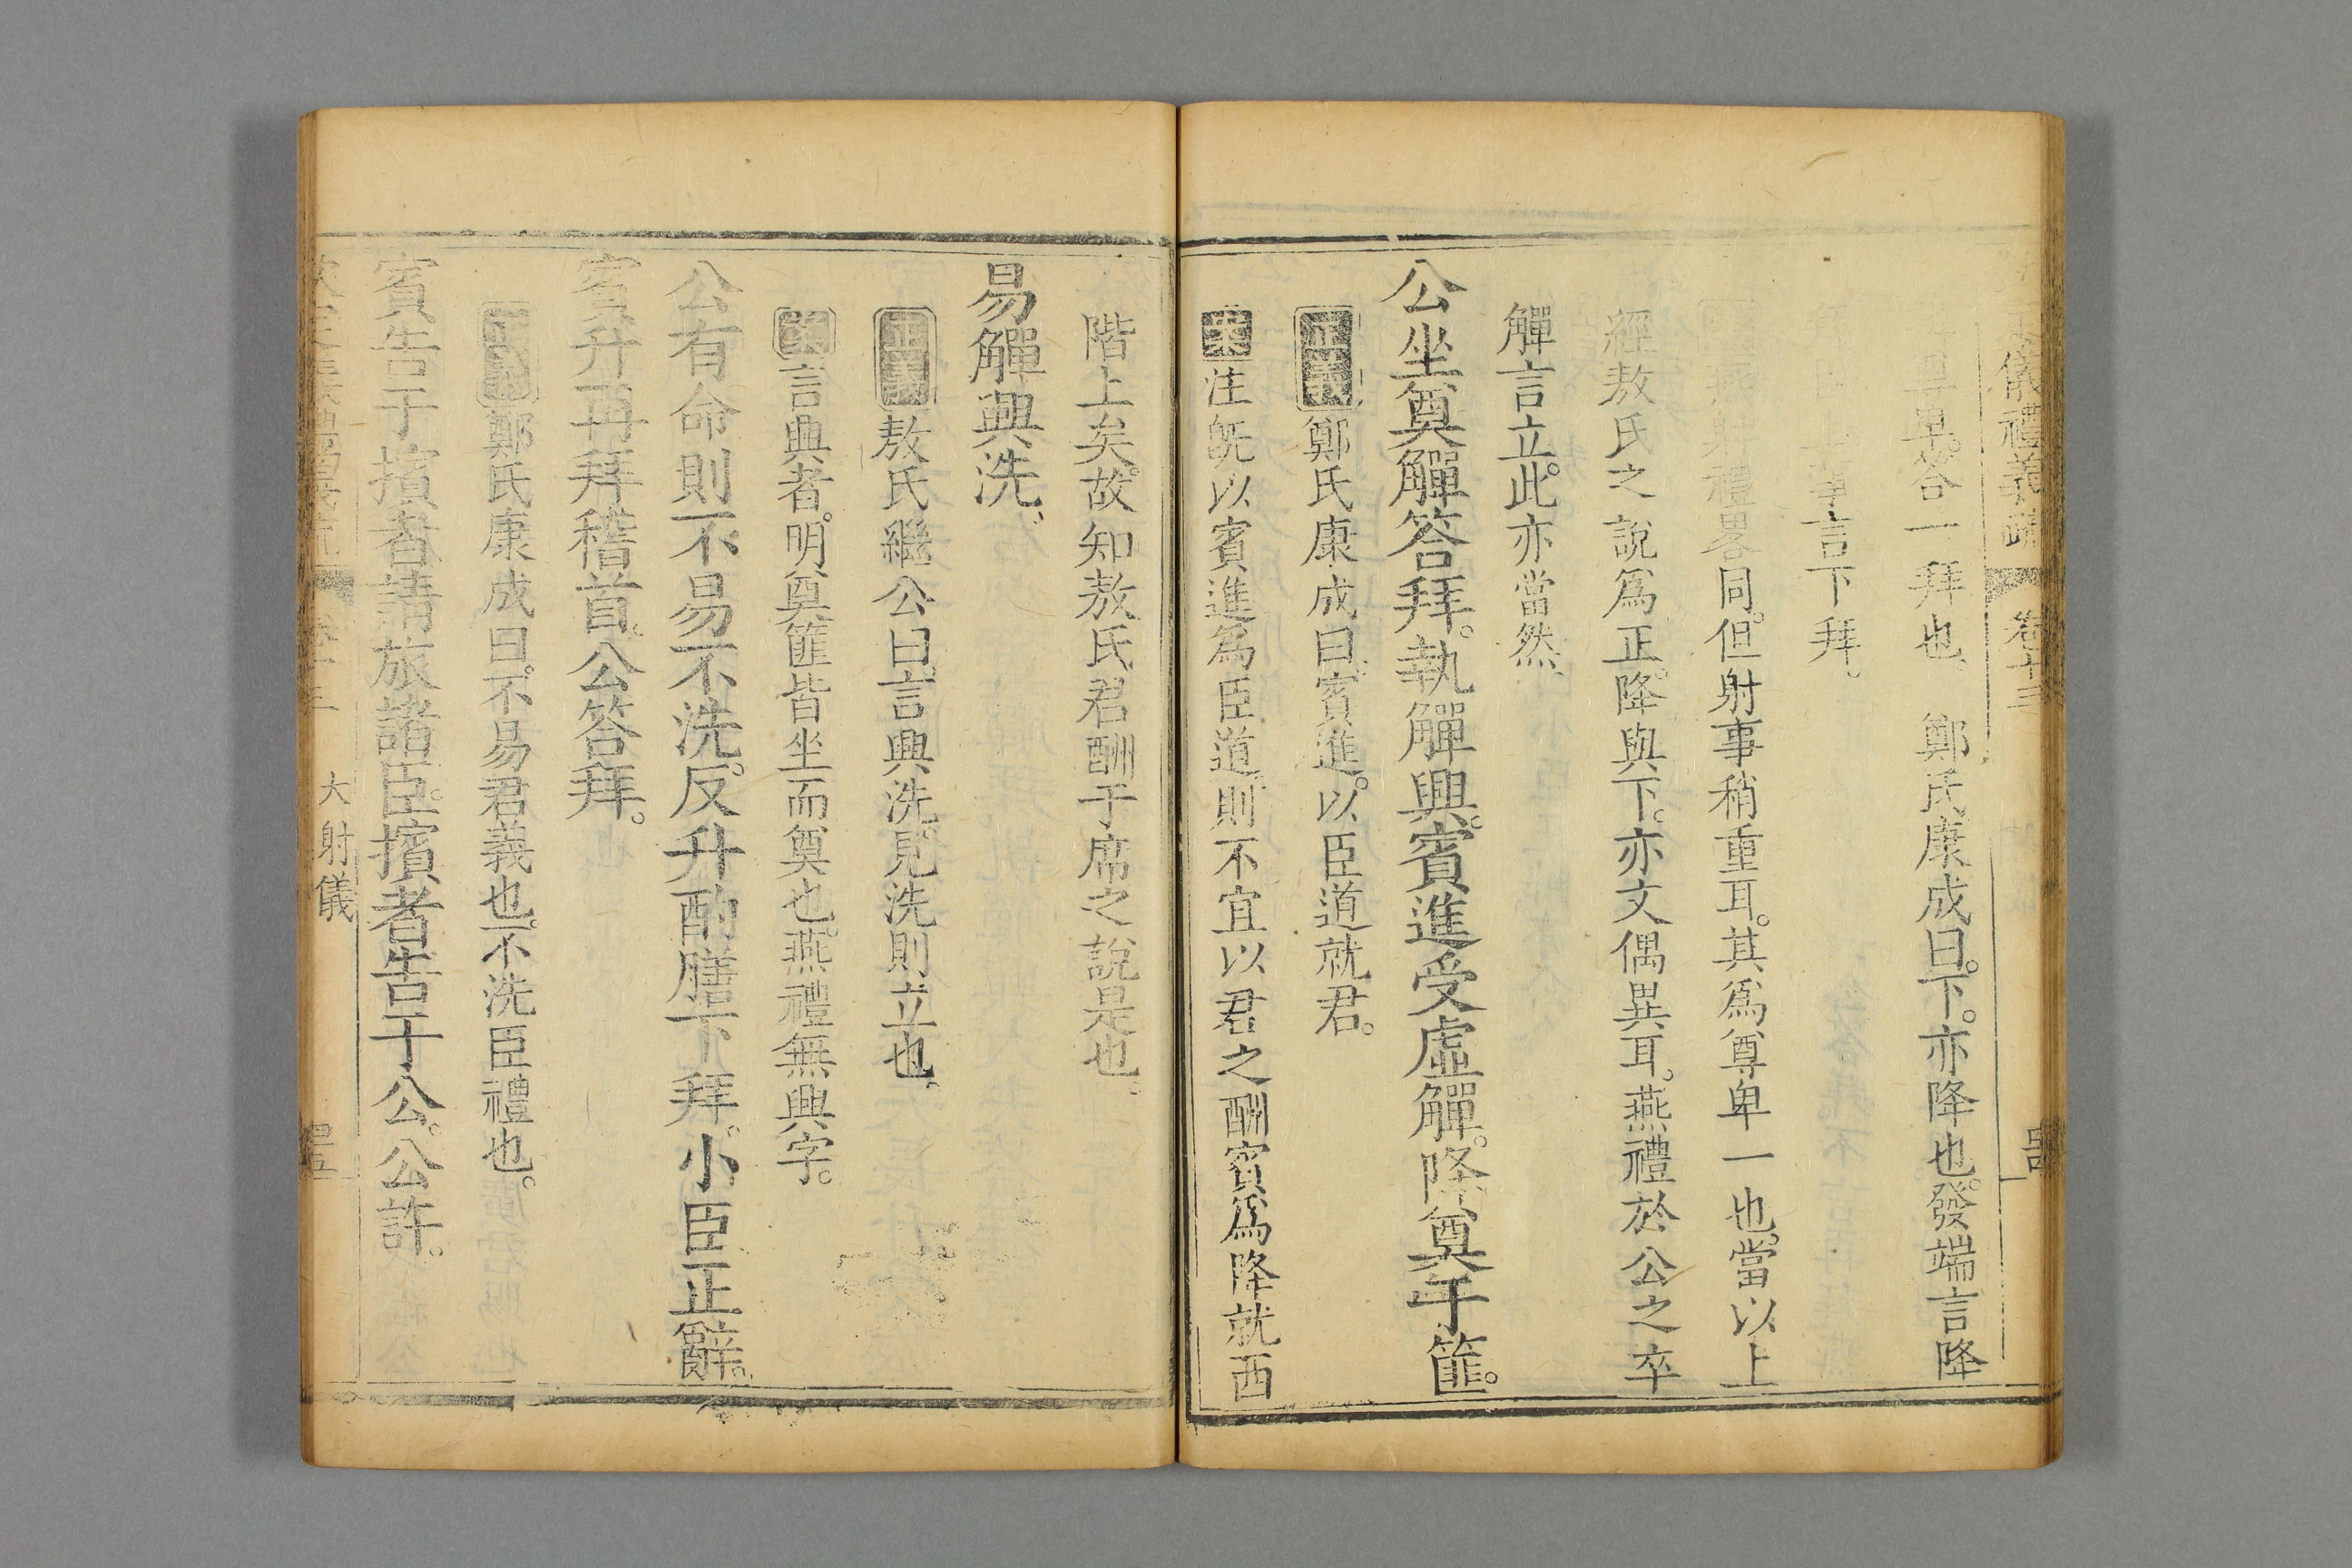 儀禮義疏 卷十三
卑。答一拜也 鄭氏康成曰。下。亦降也。發端言降
言下拜。
禮畧同。但射事稍重耳。其爲尊卑一也。當以上
經敖氏之說爲正。降與下。亦文偶異耳。燕禮於公之卒
觶言立。此亦當然
公坐奠觶答拜。執觶興。賓進受虛觶。降奠于篚。
正義鄭氏康成曰。賓進。以臣道就君。
案注旣以賓進爲臣道。則不宜以君之酬賓爲降就西
階上矣。故知敖氏君酬于席之說是也。
易觶興洗
正義敖氏繼公曰。言興洗。見洗則立也。
案言興者。明奠篚皆坐而奠也。燕禮無興字。
公有命則不易不洗。反升酌膳下拜。小臣正辭。
賓升再拜稽首。公答拜。
正義鄭氏康成曰。不易君義也。不洗臣禮也。
賓告于擯者請旅諸臣。擯者告于公。公許。
大射儀